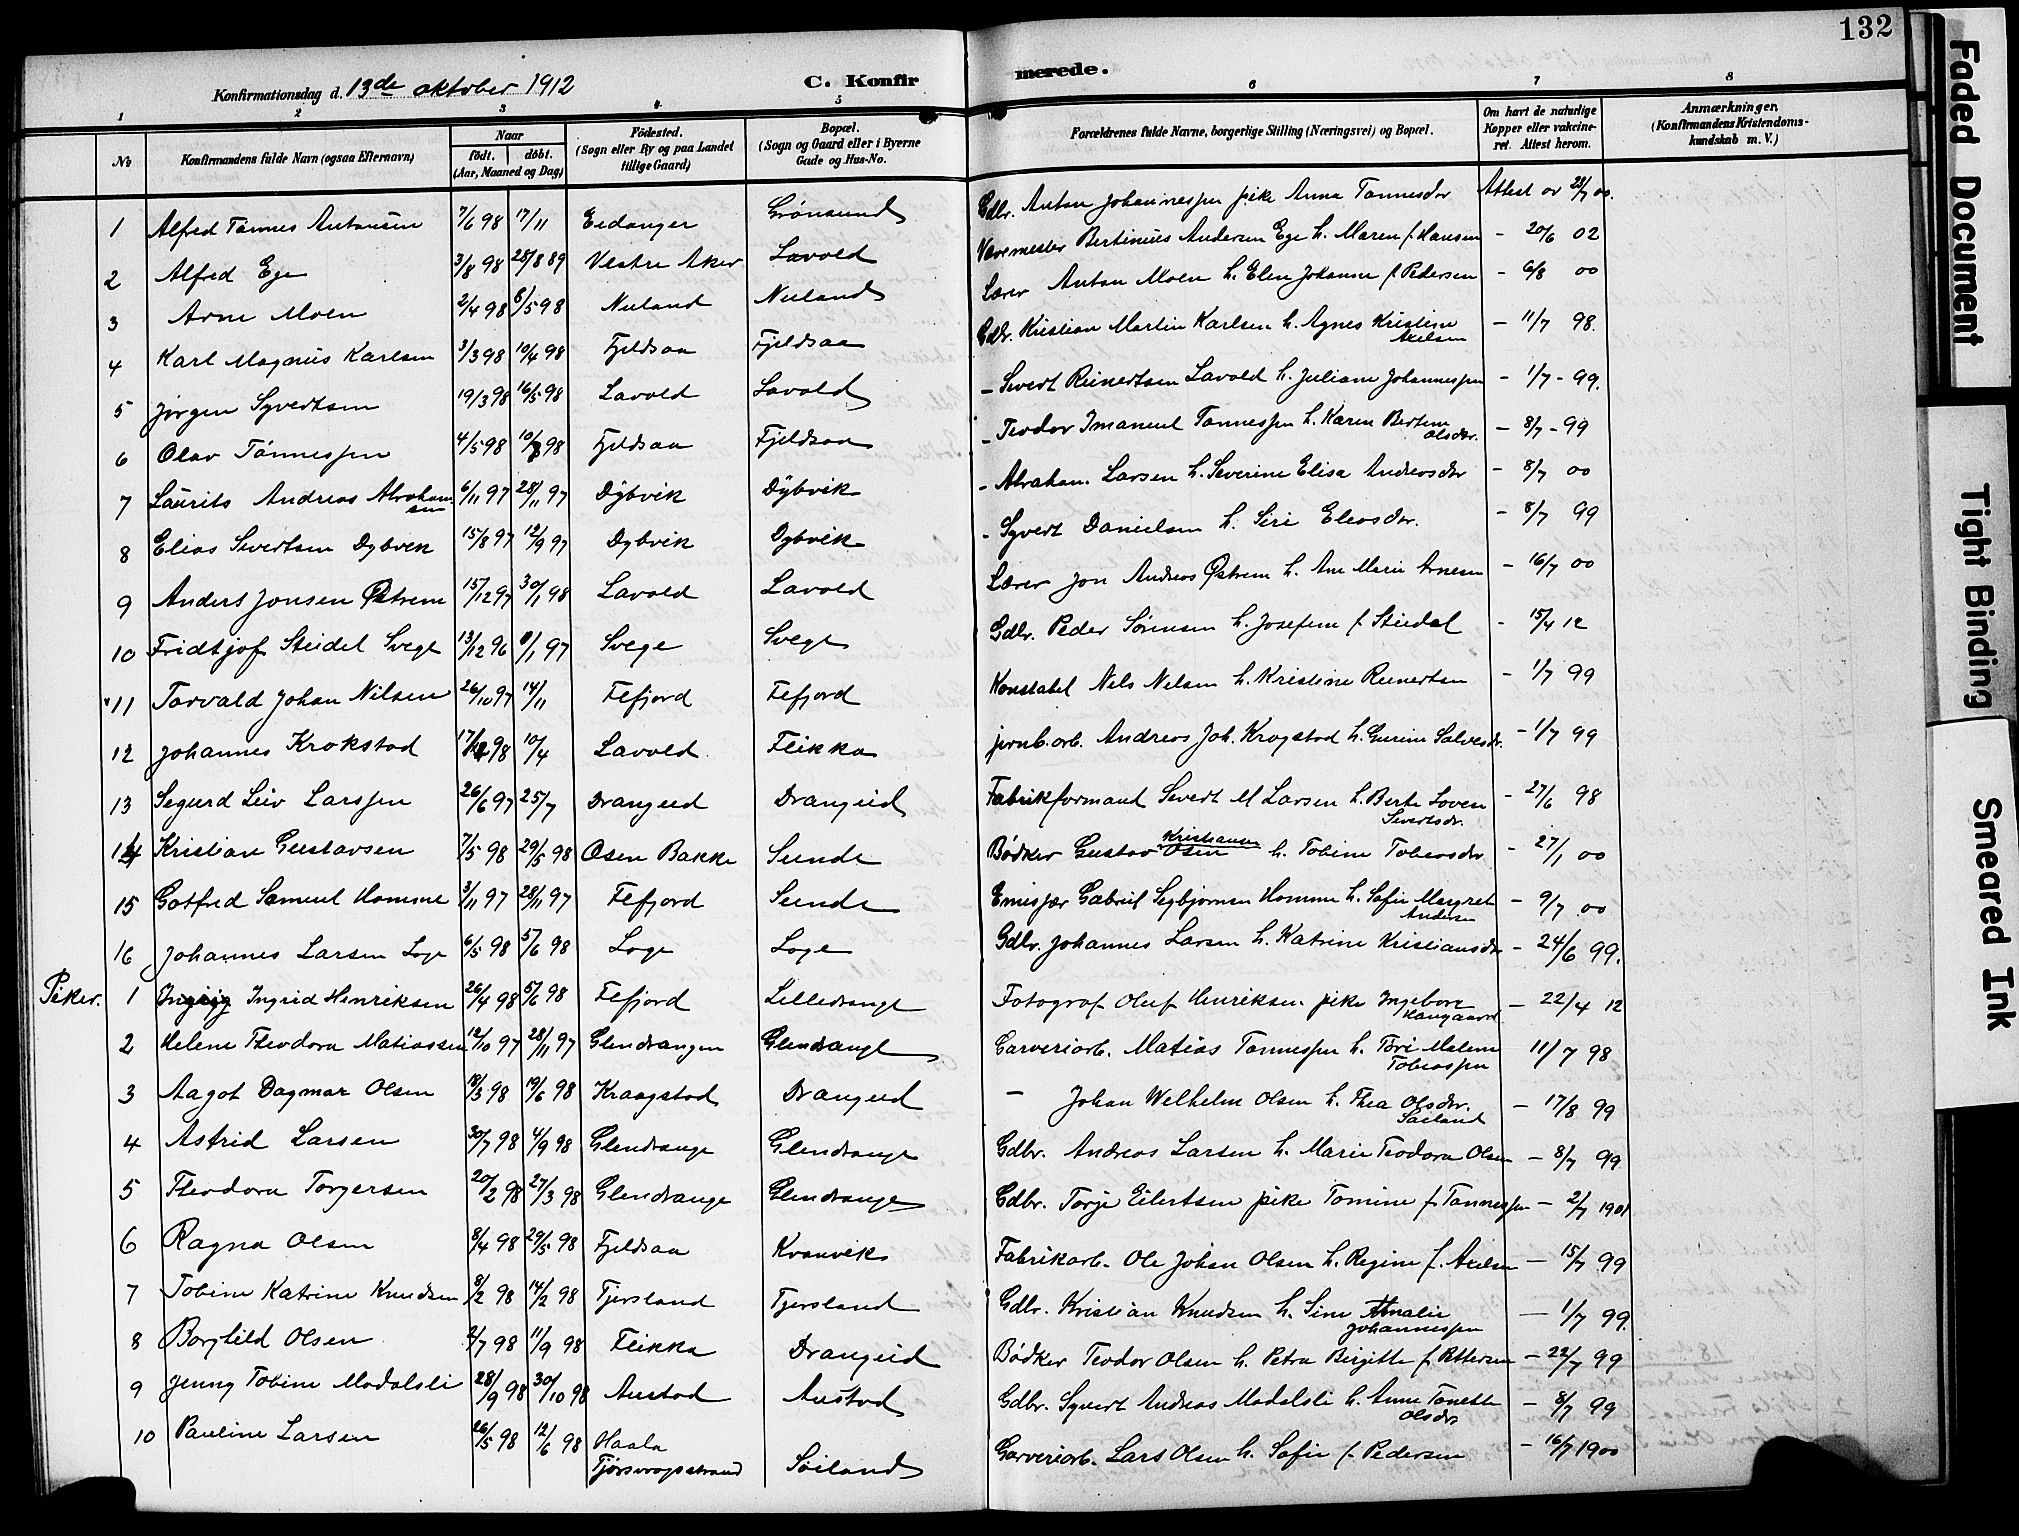 132
Konfirmationsdag d. 13de oktober 1912 C. Konfirmerede.
1 2 3 4 5 6 7 8
No Konfirmandens fulde Navn (ogsaa Efternavn) Naar födt. döbt. (Aar, Maaned og Dag) Födested. (Sogn eller By og paa Landet tillige Gaard) Bopæl. (Sogn og Gaard eller i Byerne Gade og Hus-No. Forældrenes fulde Navne, borgerlige Stilling (Næringsvei) og Bopæl. Om havt de naturlige Kopper eller vakcineret. Attest herom. Anmærkninger. (Konfirmandens Kristendomskundskab m. V.)
1 Alfred Tönnes Antonsen 7/6 98 17/11 Eidanger Grönsund Gdbr. Anton Johannessen pike Anna Tønnesdtr Attest av 23/7 00.
2 Alfred Ege 3/8 98 28/8 89 Vestre Aker Lavold Bertinius Andersen Ege h. Maren f. Hansen - 20/6 02
3 Arne Moen 2/4 98 8/5 98 Nuland Nuland Lærer Anton Moen h. Elen Johanne f. Pedersen - 6/8 00
4 Karl Magnus Karlsen 3/3 98 10/4 98 Fjeldsaa Fjeldsaa Gdbr. Kristian Martin Karlsen h. Agnes Kristine Axelsen - 11/7 98.
5 Jørgen Syvertsen 19/3 98 16/5 98 Lavold Lavold - Sivert Reinertsen Lavold h. Juliane Johannessen - 1/7 - 99.
6 Olav Tönnessen 4/5 98 10/7 98 Fjeldsaa Fjeldsaa - Teodor Imanuel Tønnessen h. Karen Bertine Olsdtr. - 8/7 - 99
7 Laurits Andreas Abrahamsen 6/11 97 28/11 97 Dybvik Dybvik - Abraham Larsen h. Severine Elisa Andreasdtr - 8/7 00
8 Elias Sivertsen Dybvik 15/8 97 12/9 97 Dybvik Dybvik - Syvert Danielsen h. Siri Eleasdtr. - 8/7 99
9 Anders Jonsen Østrem 15/12 97 30/1 98 Lavold Lavold Lærer Jon Andreas Østrem h. Ane Marie Arnesen - 16/7 00
10 Fridtjof Steidel Svege 13/12 96 /1 97 Svege Svege Gdbr. Peder Sörensen h. Josefine f. Steidel - 15/4 12
11 Torvald Johan Nilsen 26/10 97 14/11 Fefjord Fefjord Konstabel Nils Nilsen h. Kristine Reinertsen - 1/7 99
12 Johannes Krokstad 17/ 98 10/4 Lavold Feikka jernb.arb. Andreas Joh. Krogstad h. Gurine Salvesdtr. - 1/7 99
13 Segurd Leiv Larssen 26/6 97 25/7 Drangeid Drangeid Fabrikformand Sivert M Larsen h. Berte Lovise Sivertsdr. - 27/6 98
14 Kristian Gustavsen 7/5 98 29/5 98 Osen Bakke Sunde Bødker Gustav Kristiansen Osen h. Tobine Tobiasdtr - 27/1 00
15 Gotfred Samuel Homme 3/11 97 28/11 97 Fefjord Sunde Gabriel Segbjørnsen Homme h. Sofie Margret Andersen - 9/7 00
16 Johannes Larsen Loge 6/5 98 5/6 98 Loge Loge Gdbr. Johannes Larsen h. Katrine Kristiansdtr - 24/6 99.
Piker. 1 Ingrid Henriksen 26/4 98 5/6 98 Fefjord Lilledrange Fotograf Oluf Henriksen pike Ingeborg Haugaard - 22/4 12
2 Helene Theodora Matiassen 12/10 97 28/11 97 Glendrangen Glendrange Garveriarb. Matias Tønnessen h. Tori Malene Tobiassen 11/7 98
3 Aagot Dagmar Olsen 18/3 98 19/6 98 Kraagstad Drangeid - Johan Welhelm Olsen h. Thea Olsdtr. Sæiland - 17/8 99
4 Astrid Larsen 30/7 98 4/9 98 Glendrange Glendrange Gdbr. Andreas Larsen h. Marie Teodora Olsen - 8/7 99
5 Theodora Torgersen 20/2 98 27/3 98 Glendrange Glendrange Gdbr. Torje Eilertsen pike Tomine f. Tønnessen - 2/7 1901
6 Ragna Olsen 8/4 98 29/5 98 Fjeldsaa Kvanvik Fabrikarb. Ole Johan Olsen h. Regine f. Axelsen - 15/7 99
7 Tobine Katrine Knudsen 8/2 98 14/2 98 Tjersland Tjersland Gdbr. Kristian Knudsen h. Sine Amalie Johannessen - 1/7 99.
8 Borghild Olsen 2/7 98 11/9 98 Feikka Drangeid Bødker Teodor Olsen h. Petra Birgitte f. Pettersen - 22/7 99
9 Jenny Tobine Modalsli 28/9 98 30/10 98 Austad Austad Gdbr. Syvert Andreas Modalsli h. Anne Tonette Olsdtr - 8/7 99
10 Pauline Larsen 26/5 98 12/6 98 Haala Tjørsvaagstrand Søiland Garveriarb. Lars Olsen h. Sofie f. Pedersen - 16/7 1900
Faded Document
Tight Binding
Smeared Ink